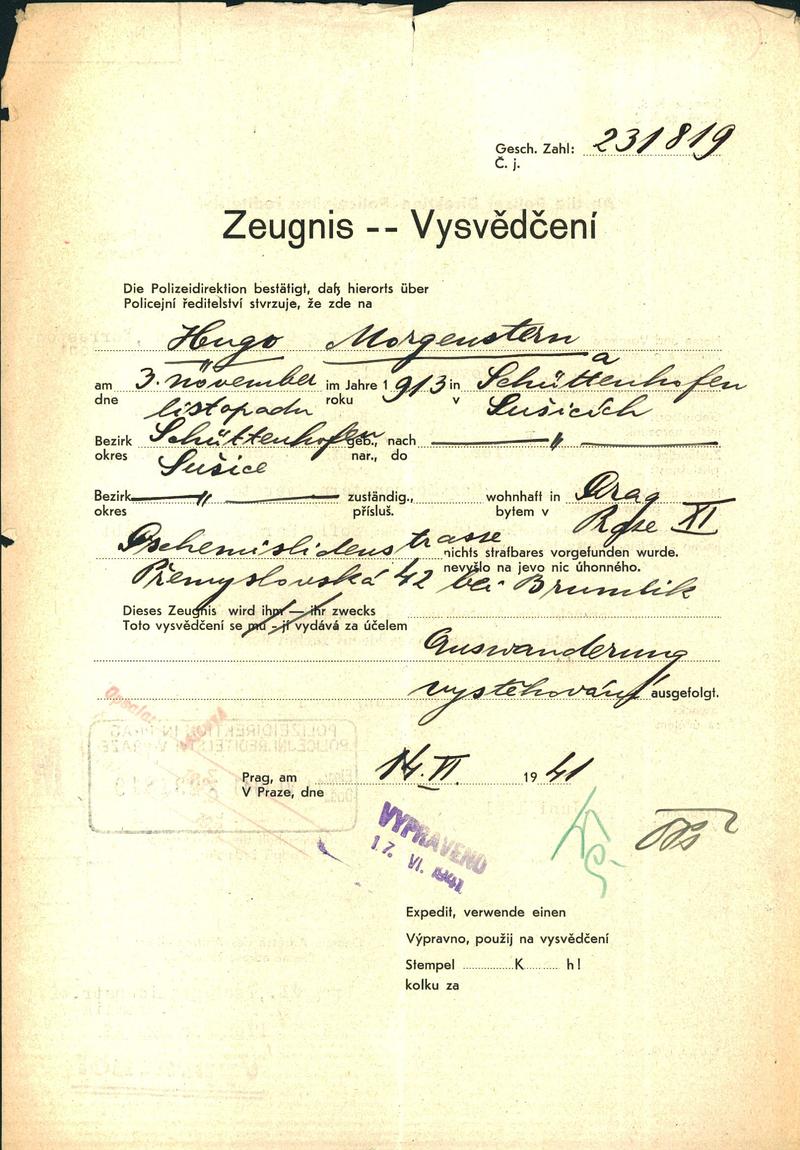 Gesch. Zahl: 231819
Č. j.
Zeugnis -- Vysvědčení
Die Polizeidirektion bestätigt, daß hierorts über
Policejní ředitelství stvrzuje, že zde na
Hugo Morgenstern
am 3. november im Jahre 1913 in Schüttenhofen
dne listopadu roku v Sušicích
Bezirk Schüttenhofen geb., nach
okres Sušice nar., do
Bezirk zuständig., wohnhaft in Prag
okres přísluš. bytem v Praze XI
Pschemislidenstrasse nichts strafbares vorgefunden wurde.
nevyšlo na jevo nic úhonného.
Přemyslovská 42 bei Brumlik
Dieses Zeugnis wird ihm — ihr zwecks
Toto vysvědčení se mu - jí vydává za účelem
Auswanderung
vystěhování ausgefolgt.
POLIZEIDIREKTION IN PRAG
POLICEJNÍ ŘEDITELSTVÍ V PRAZE
Prag, am 14. VI. 1941
V Praze, dne
VYPRAVENO
17. VI. 1941
Expedit, verwende einen
Výpravno, použij na vysvědčení
Stempel ............K......... h!
kolku za